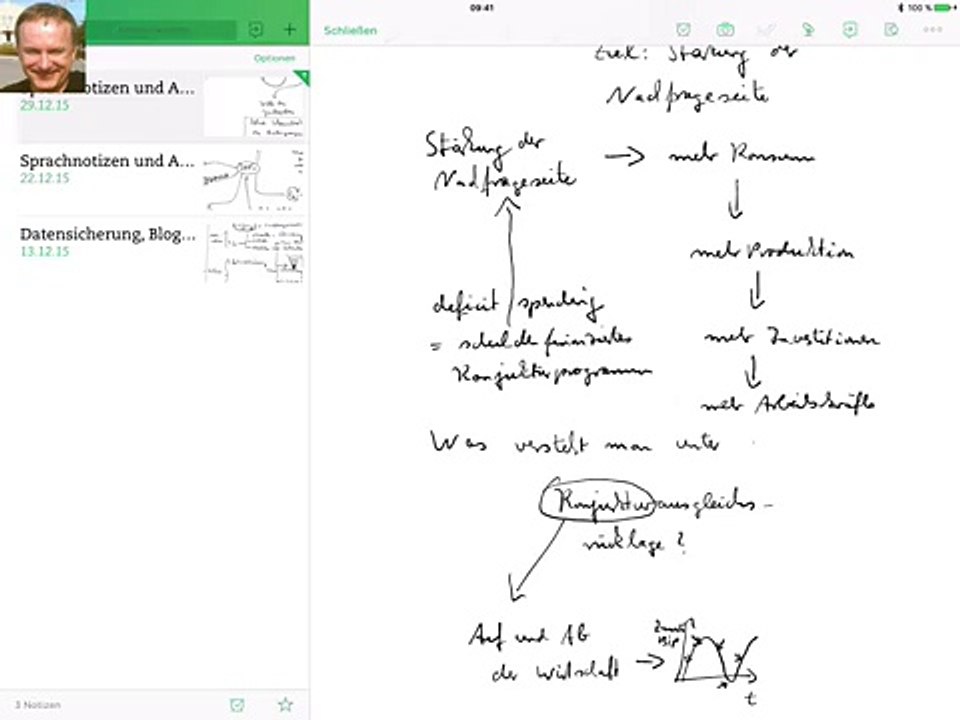 09:41
100 %
Schließen
Optionen
otizen und A...
29.12.15
Sprachnotizen und A...
22.12.15
Datensicherung, Blog...
13.12.15
3 Notizen
Ziel: Stärkung der
Nachfrageseite
Stärkung der
Nachfrageseite
→ mehr Konsum
mehr Produktion
deficit spending
= schuldenfinanziertes
Konjunkturprogramm
mehr Investitionen
mehr Arbeitskräfte
Was versteht man unter
Konjunkturausgleichs-
rücklage?
Auf und Ab
der Wirtschaft →
t